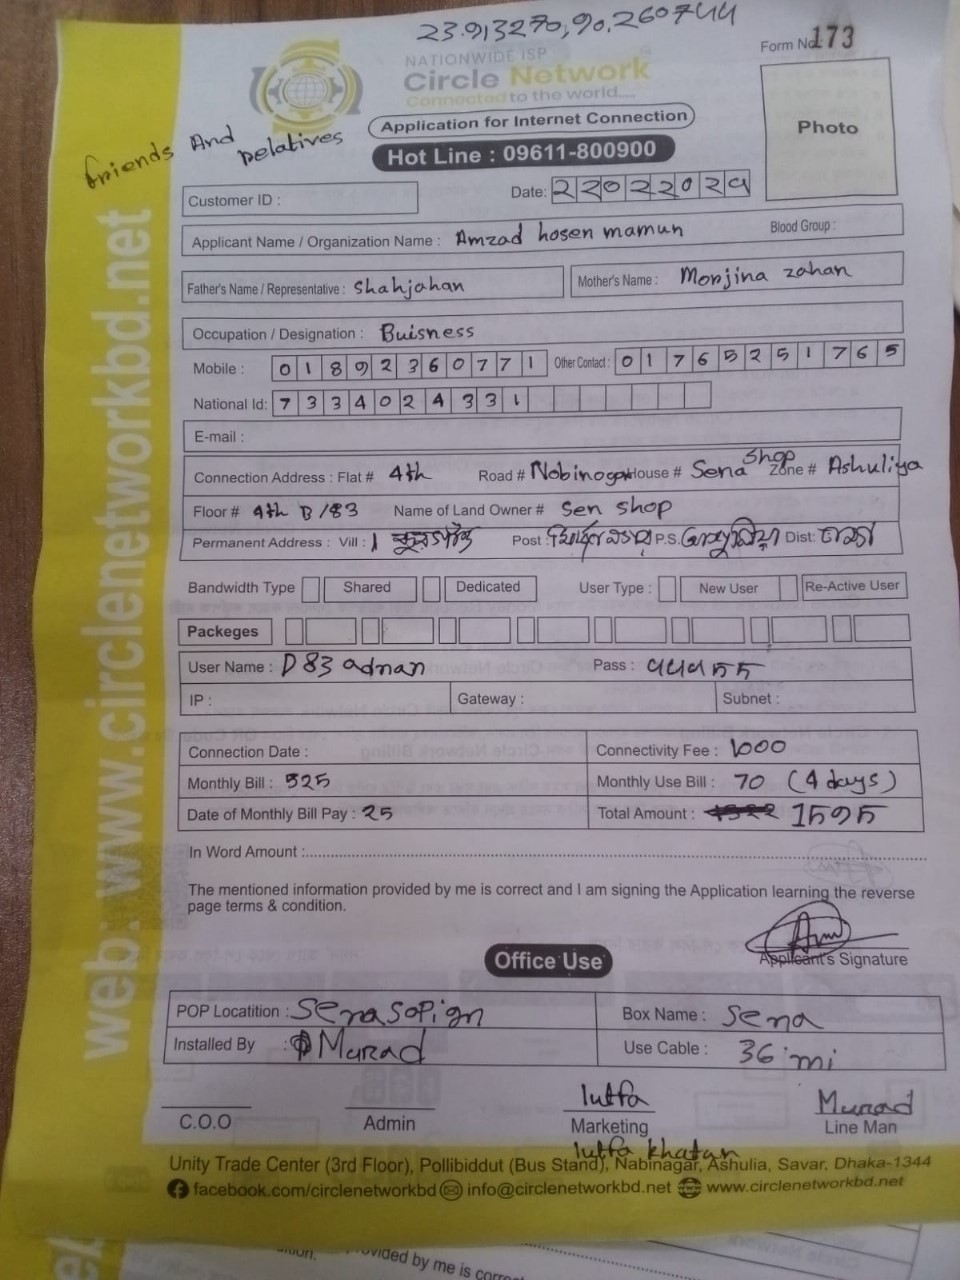 23.913270,90.260744
NATIONWIDE ISP
Circle Network
Connected to the world....
Form No. 173
Photo
Friends And Relatives
Application for Internet Connection
Hot Line : 09611-800900
Customer ID :
Date: 22022024
Applicant Name / Organization Name : Amzad hosen mamun Blood Group :
Father's Name / Representative : Shahjahan Mother's Name : Monjina zahan
Occupation / Designation : Buisness
Mobile : 01892360771 Other Contact : 01765251765
National Id: 7334024331
E-mail :
Connection Address : Flat # 4th Road # Nobinogar House # Sena Shop Zone # Ashuliya
Floor # 4th B/83 Name of Land Owner # Sen shop
Permanent Address : Vill : Post : P.S. Dist: ঢাকা
Bandwidth Type Shared Dedicated User Type : New User Re-Active User
Packeges
User Name : D83 adnan Pass :
IP : Gateway : Subnet :
Connection Date : Connectivity Fee : 1000
Monthly Bill : 525 Monthly Use Bill : 70 (4 days)
Date of Monthly Bill Pay : 25 Total Amount : 1595
In Word Amount :
The mentioned information provided by me is correct and I am signing the Application learning the reverse
page terms & condition.
Applicant's Signature
Office Use
POP Locatition : Box Name : Sena
Installed By : Murad Use Cable : 36 mi
lutfa Murad
C.O.O Admin Marketing Line Man
lutfa khatan
Unity Trade Center (3rd Floor), Pollibiddut (Bus Stand), Nabinagar, Ashulia, Savar. Dhaka-1344
facebook.com/circlenetworkbd info@circlenetworkbd.net www.circlenetworkbd.net
web: www.circlenetworkbd.net
vided by me is correc